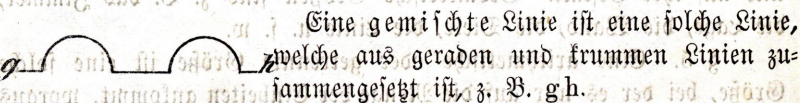 Eine gemischte Linie ist eine solche Linie,
g h welche aus geraden und krummen Linien zu=
sammengesetzt ist, z. B. g h.